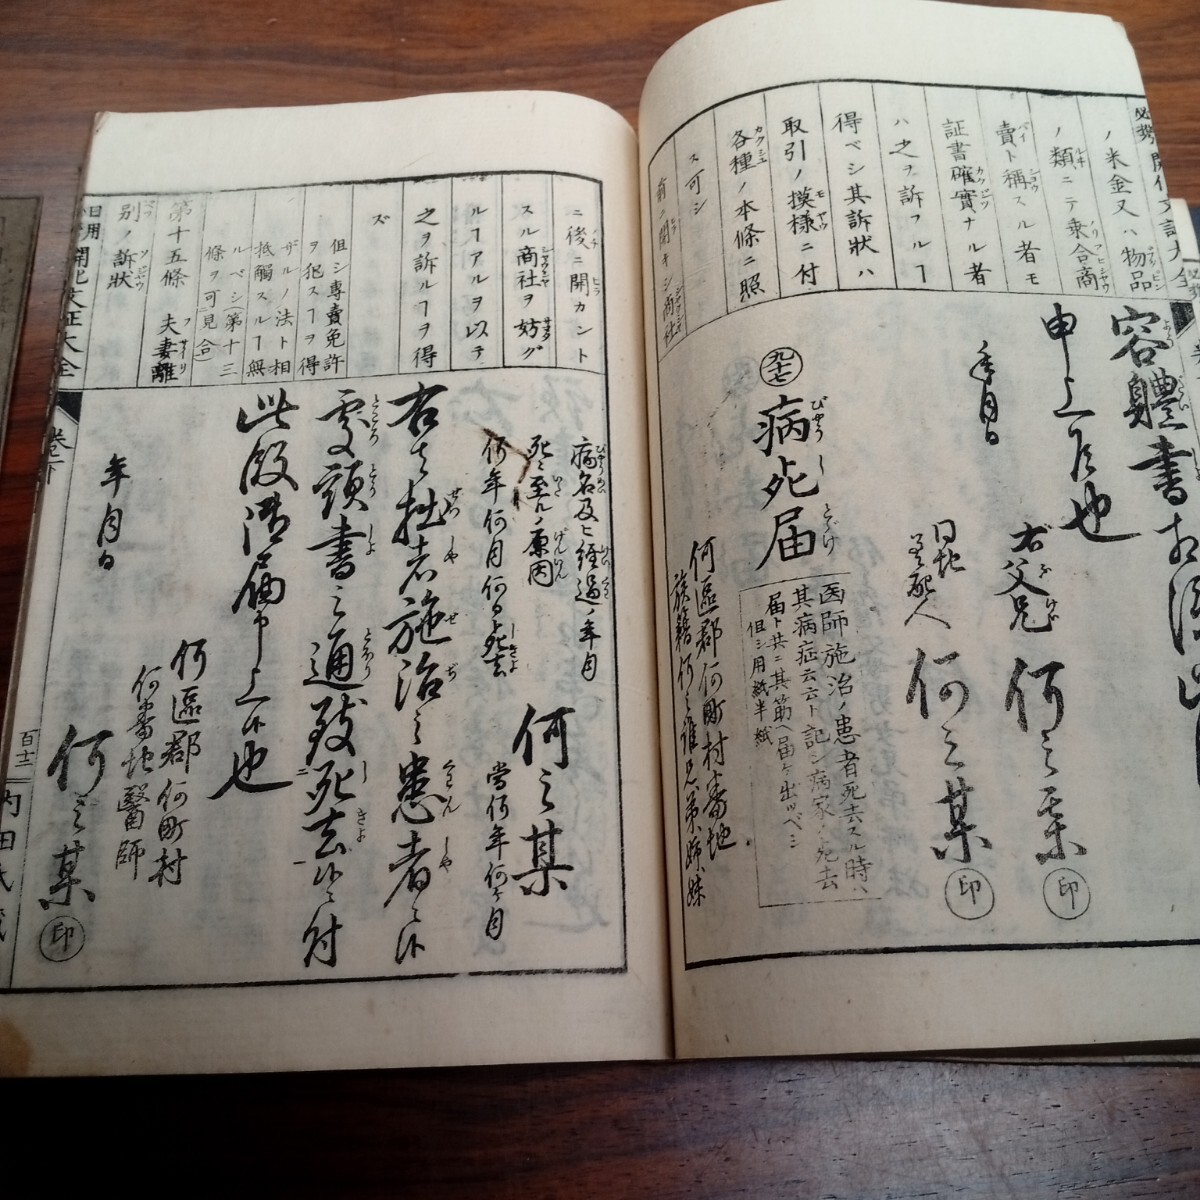 ノ米金又ハ物品
ノ類ニテ乗合商
賣ト稱スル者モ
証書確實ナル者
ハ之ヲ訴フルヿ
得ベシ其訴状ハ
取引ノ摸様ニ付
各種ノ本條ニ照
ス可シ
容體書相添此
申上候也
年月日
右父兄 何之某 印
同地
差配人 何之某 印
九十七 病死届
医師施治ノ患者死去スル時ハ
其病症云云ト記シ病家ノ死去
届ト共ニ其筋ヘ届ケ出ツベシ
但シ用紙半紙
何區郡何町村番地
族籍何之誰兄弟姉妹
ニ後ニ開カント
スル商社ヲ妨グ
ルヿアルヲ以テ
之ヲ訴ルヿヲ得
ズ
但シ専賣免許
ヲ犯スヿヲ得
ザルノ法ト相
抵觸スルヿ無
ルベシ(第十三
條ヲ可見合)
第十五條 夫妻離
別ノ訴状
何之某
當何年何ヶ月
病名及ヒ経過ノ年月
死ニ至ルノ原因
何年何月何日死去
右者拙者施治之患者ニ候
處頭書之通致死去候ニ付
此段御届申上候也
年月日
何區郡何町村
何番地醫師
何之某 印
日用 開化文証大全
巻之下
百十二
内田氏蔵